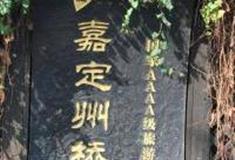 嘉定州桥
国家AAAA级旅游